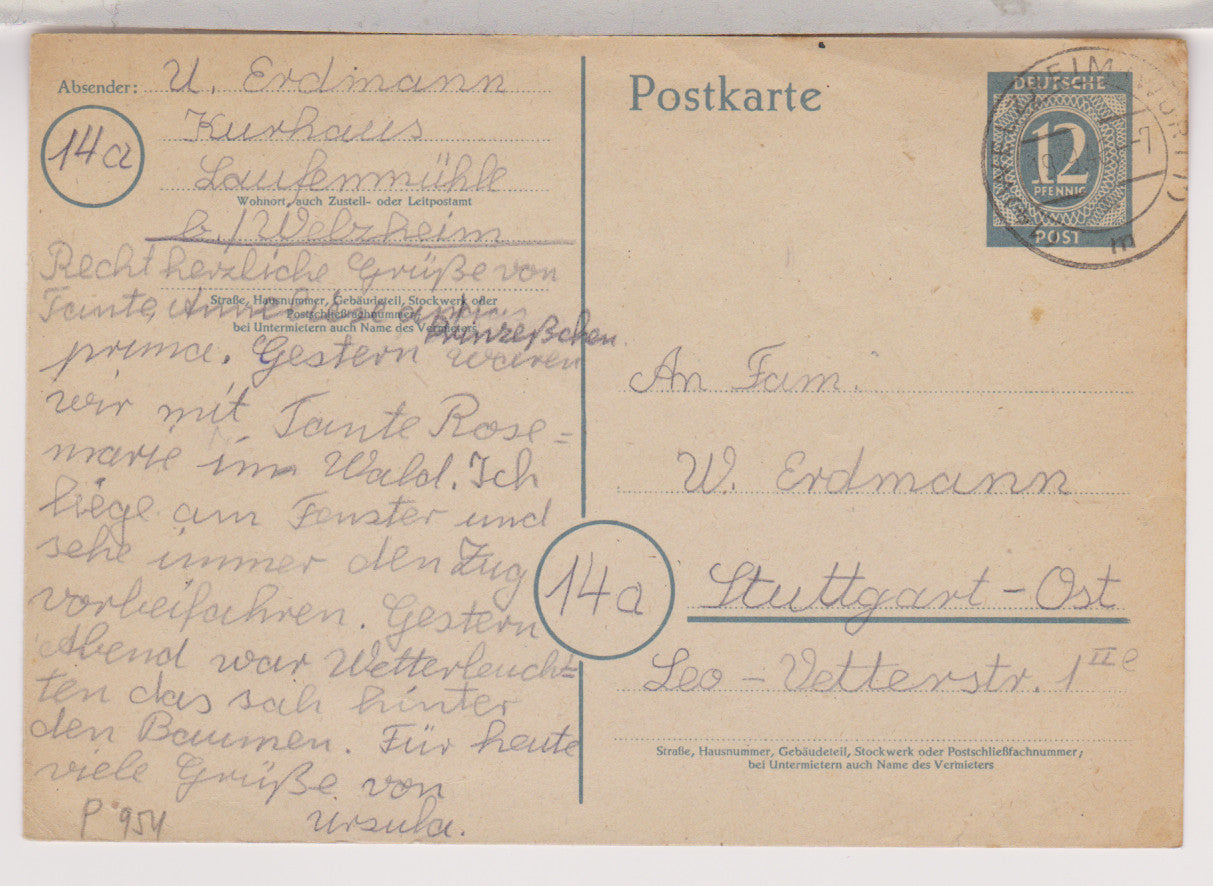 Absender: U. Erdmann
14a
Kurhaus
Laufenmühle
Wohnort, auch Zustell- oder Leitpostamt
b./Welzheim
Recht herzliche Grüße von
Tante Anneliese
Prinzeßchen.
Straße, Hausnummer, Gebäudeteil, Stockwerk oder
Postschließfachnummer;
bei Untermietern auch Name des Vermieters
prima. Gestern waren
wir mit Tante Rose=
marie im Wald. Ich
liege am Fenster und
sehe immer den Zug
vorbeifahren. Gestern
Abend war Wetterleuch=
ten das sah hinter
den Baumen. Für heute
viele Grüße von
Ursula.
P 954
Postkarte
DEUTSCHE
12
PFENNIG
POST
WELZHEIM (WÜRTT)
m
An Fam.
W. Erdmann
14a
Stuttgart-Ost
Leo-Vetterstr. 1 II e
Straße, Hausnummer, Gebäudeteil, Stockwerk oder Postschließfachnummer;
bei Untermietern auch Name des Vermieters